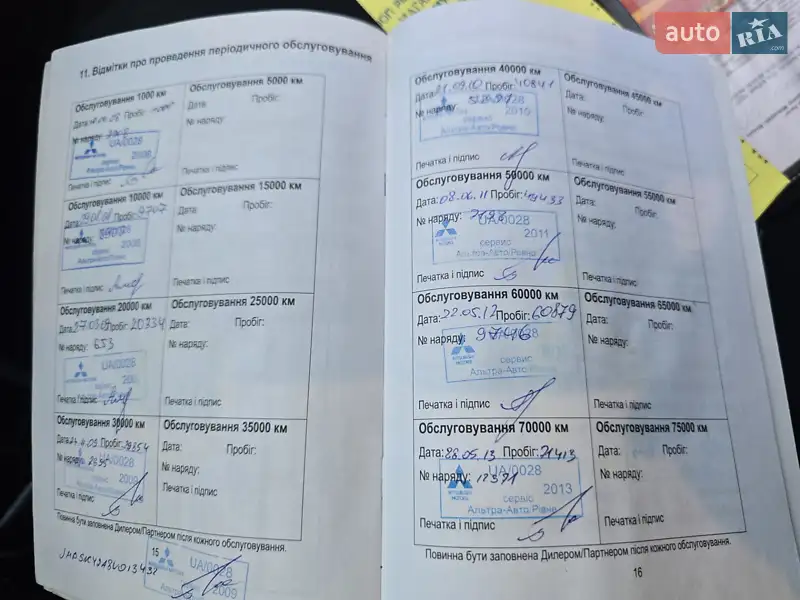 auto RIA .com
11. Відмітки про проведення періодичного обслуговування
Обслуговування 1000 км
Дата: Пробіг:
№ наряду:
UA/0028
2008
сервіс
Альтра-Авто/Рівне
Печатка і підпис
Обслуговування 5000 км
Дата: Пробіг:
№ наряду:
Печатка і підпис
Обслуговування 10000 км
Дата: Пробіг: 9707
№ наряду:
UA/0028
2008
сервіс
Альтра-Авто/Рівне
Печатка і підпис
Обслуговування 15000 км
Дата: Пробіг:
№ наряду:
Печатка і підпис
Обслуговування 20000 км
Дата: Пробіг: 20334
№ наряду: 653
UA/0028
Печатка і підпис
Обслуговування 25000 км
Дата: Пробіг:
№ наряду:
Печатка і підпис
Обслуговування 30000 км
Дата: Пробіг:
№ наряду:
UA/0028
2009
Печатка і підпис
Обслуговування 35000 км
Дата: Пробіг:
№ наряду:
Печатка і підпис
Повинна бути заповнена Дилером/Партнером після кожного обслуговування.
15
UA/0028
2009
Обслуговування 40000 км
Дата: Пробіг: 40841
№ наряду:
2010
Альтра-Авто/Рівне
Печатка і підпис
Обслуговування 45000 км
Дата: Пробіг:
№ наряду:
Печатка і підпис
Обслуговування 50000 км
Дата: 08.06.11 Пробіг: 49433
№ наряду:
UA/0028
2011
MITSUBISHI MOTORS
сервіс
Альтра-Авто/Рівне
Печатка і підпис
Обслуговування 55000 км
Дата: Пробіг:
№ наряду:
Печатка і підпис
Обслуговування 60000 км
Дата: 22.05.12 Пробіг: 60879
№ наряду: 9746
MITSUBISHI MOTORS
сервіс
Альтра-Авто/Рівне
Печатка і підпис
Обслуговування 65000 км
Дата: Пробіг:
№ наряду:
Печатка і підпис
Обслуговування 70000 км
Дата: 28.05.13 Пробіг: 71413
№ наряду: 12371
UA/0028
MITSUBISHI MOTORS
2013
сервіс
Альтра-Авто/Рівне
Печатка і підпис
Обслуговування 75000 км
Дата: Пробіг:
№ наряду:
Печатка і підпис
Повинна бути заповнена Дилером/Партнером після кожного обслуговування.
16